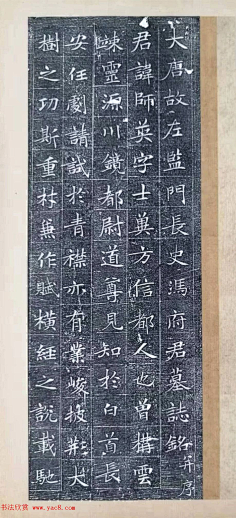 大唐故左監門長史馮府君墓誌銘并序
君諱師英字士奠方信都人也曾構雲
竦靈源川鏡都尉道尊見知於白首長
安任劇請試於青襟亦有業峻披荆大
樹之功斯重材兼作賦橫經之說載馳
书法欣赏 www.yac8.com